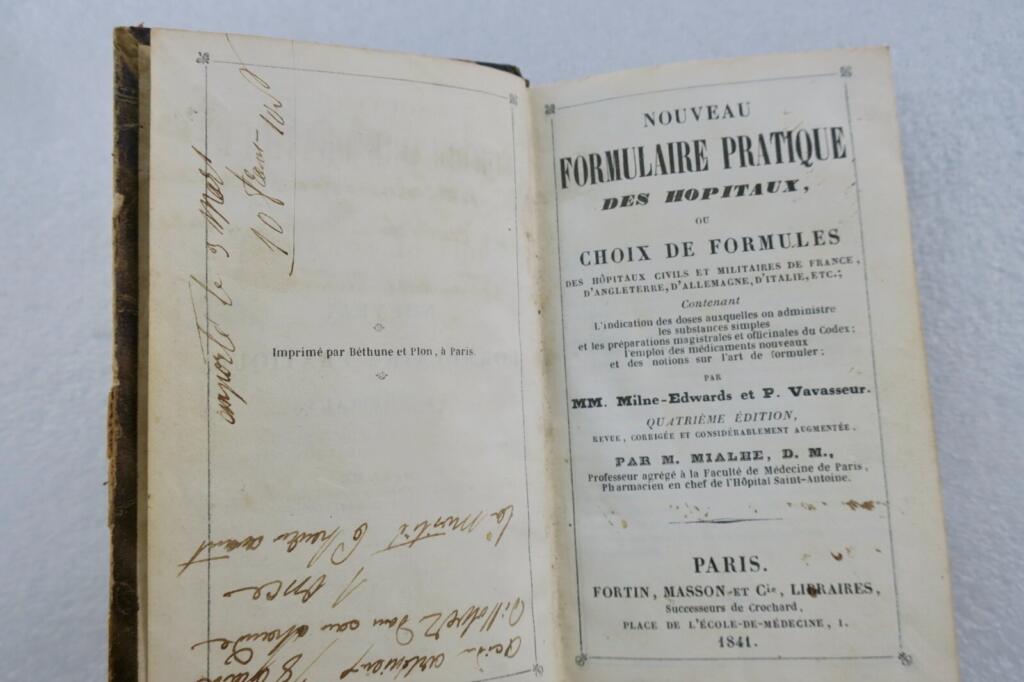 emporté le 3 mars
10 francs
Imprimé par Béthune et Plon, à Paris.
la moitié
avant
1 once
dans eau chaude
NOUVEAU
FORMULAIRE PRATIQUE
DES HOPITAUX,
OU
CHOIX DE FORMULES
DES HÔPITAUX CIVILS ET MILITAIRES DE FRANCE,
D'ANGLETERRE, D'ALLEMAGNE, D'ITALIE, ETC.;
Contenant
L'indication des doses auxquelles on administre
les substances simples
et les préparations magistrales et officinales du Codex;
l'emploi des médicaments nouveaux
et des notions sur l'art de formuler;
PAR
MM. Milne-Edwards et P. Vavasseur.
QUATRIÈME ÉDITION,
REVUE, CORRIGÉE ET CONSIDÉRABLEMENT AUGMENTÉE.
PAR M. MIALHE, D. M.,
Professeur agrégé à la Faculté de Médecine de Paris,
Pharmacien en chef de l'Hôpital Saint-Antoine.
PARIS.
FORTIN, MASSON ET Cie, LIBRAIRES,
Successeurs de Crochard,
PLACE DE L'ÉCOLE-DE-MÉDECINE, 1.
1841.